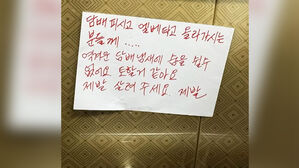 담배 피시고 엘베타고 올라가시는
분들께 .....
역겨운 담배 냄새에 숨을 쉴수
없어요 토할거 같아요
제발 살려 주세요 제발